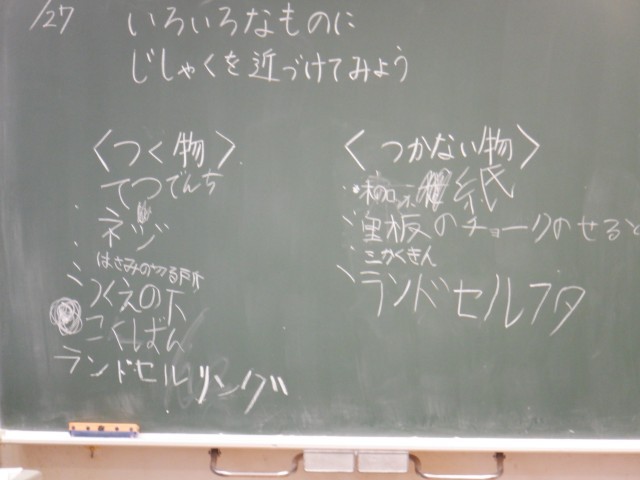 /27 いろいろなものに
じしゃくを近づけてみよう
〈つく物〉
てつでんち
ネジ
はさみの切る所
つくえの下
こくばん
ランドセルリング
〈つかない物〉
紙
黒板のチョークのせると
三かくきん
ランドセルフタ